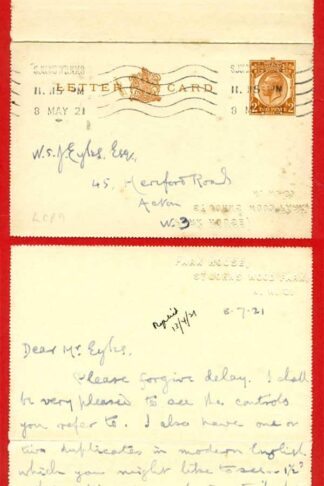 11.15 PM
8 MAY 21
LETTER CARD
11.15 PM
8 MAY 21
2 2
W.S.J. Eyles, Esq.,
45, Hereford Road,
Acton
W. 3
PARK HOUSE,
ST JOHNS WOOD PARK,
Replied
8-7-21
Dear Mr Eyles,
Please forgive delay. I shall
be very pleased to see the controls
you refer to. I also have one or
two duplicates in modern English
which you might like to see